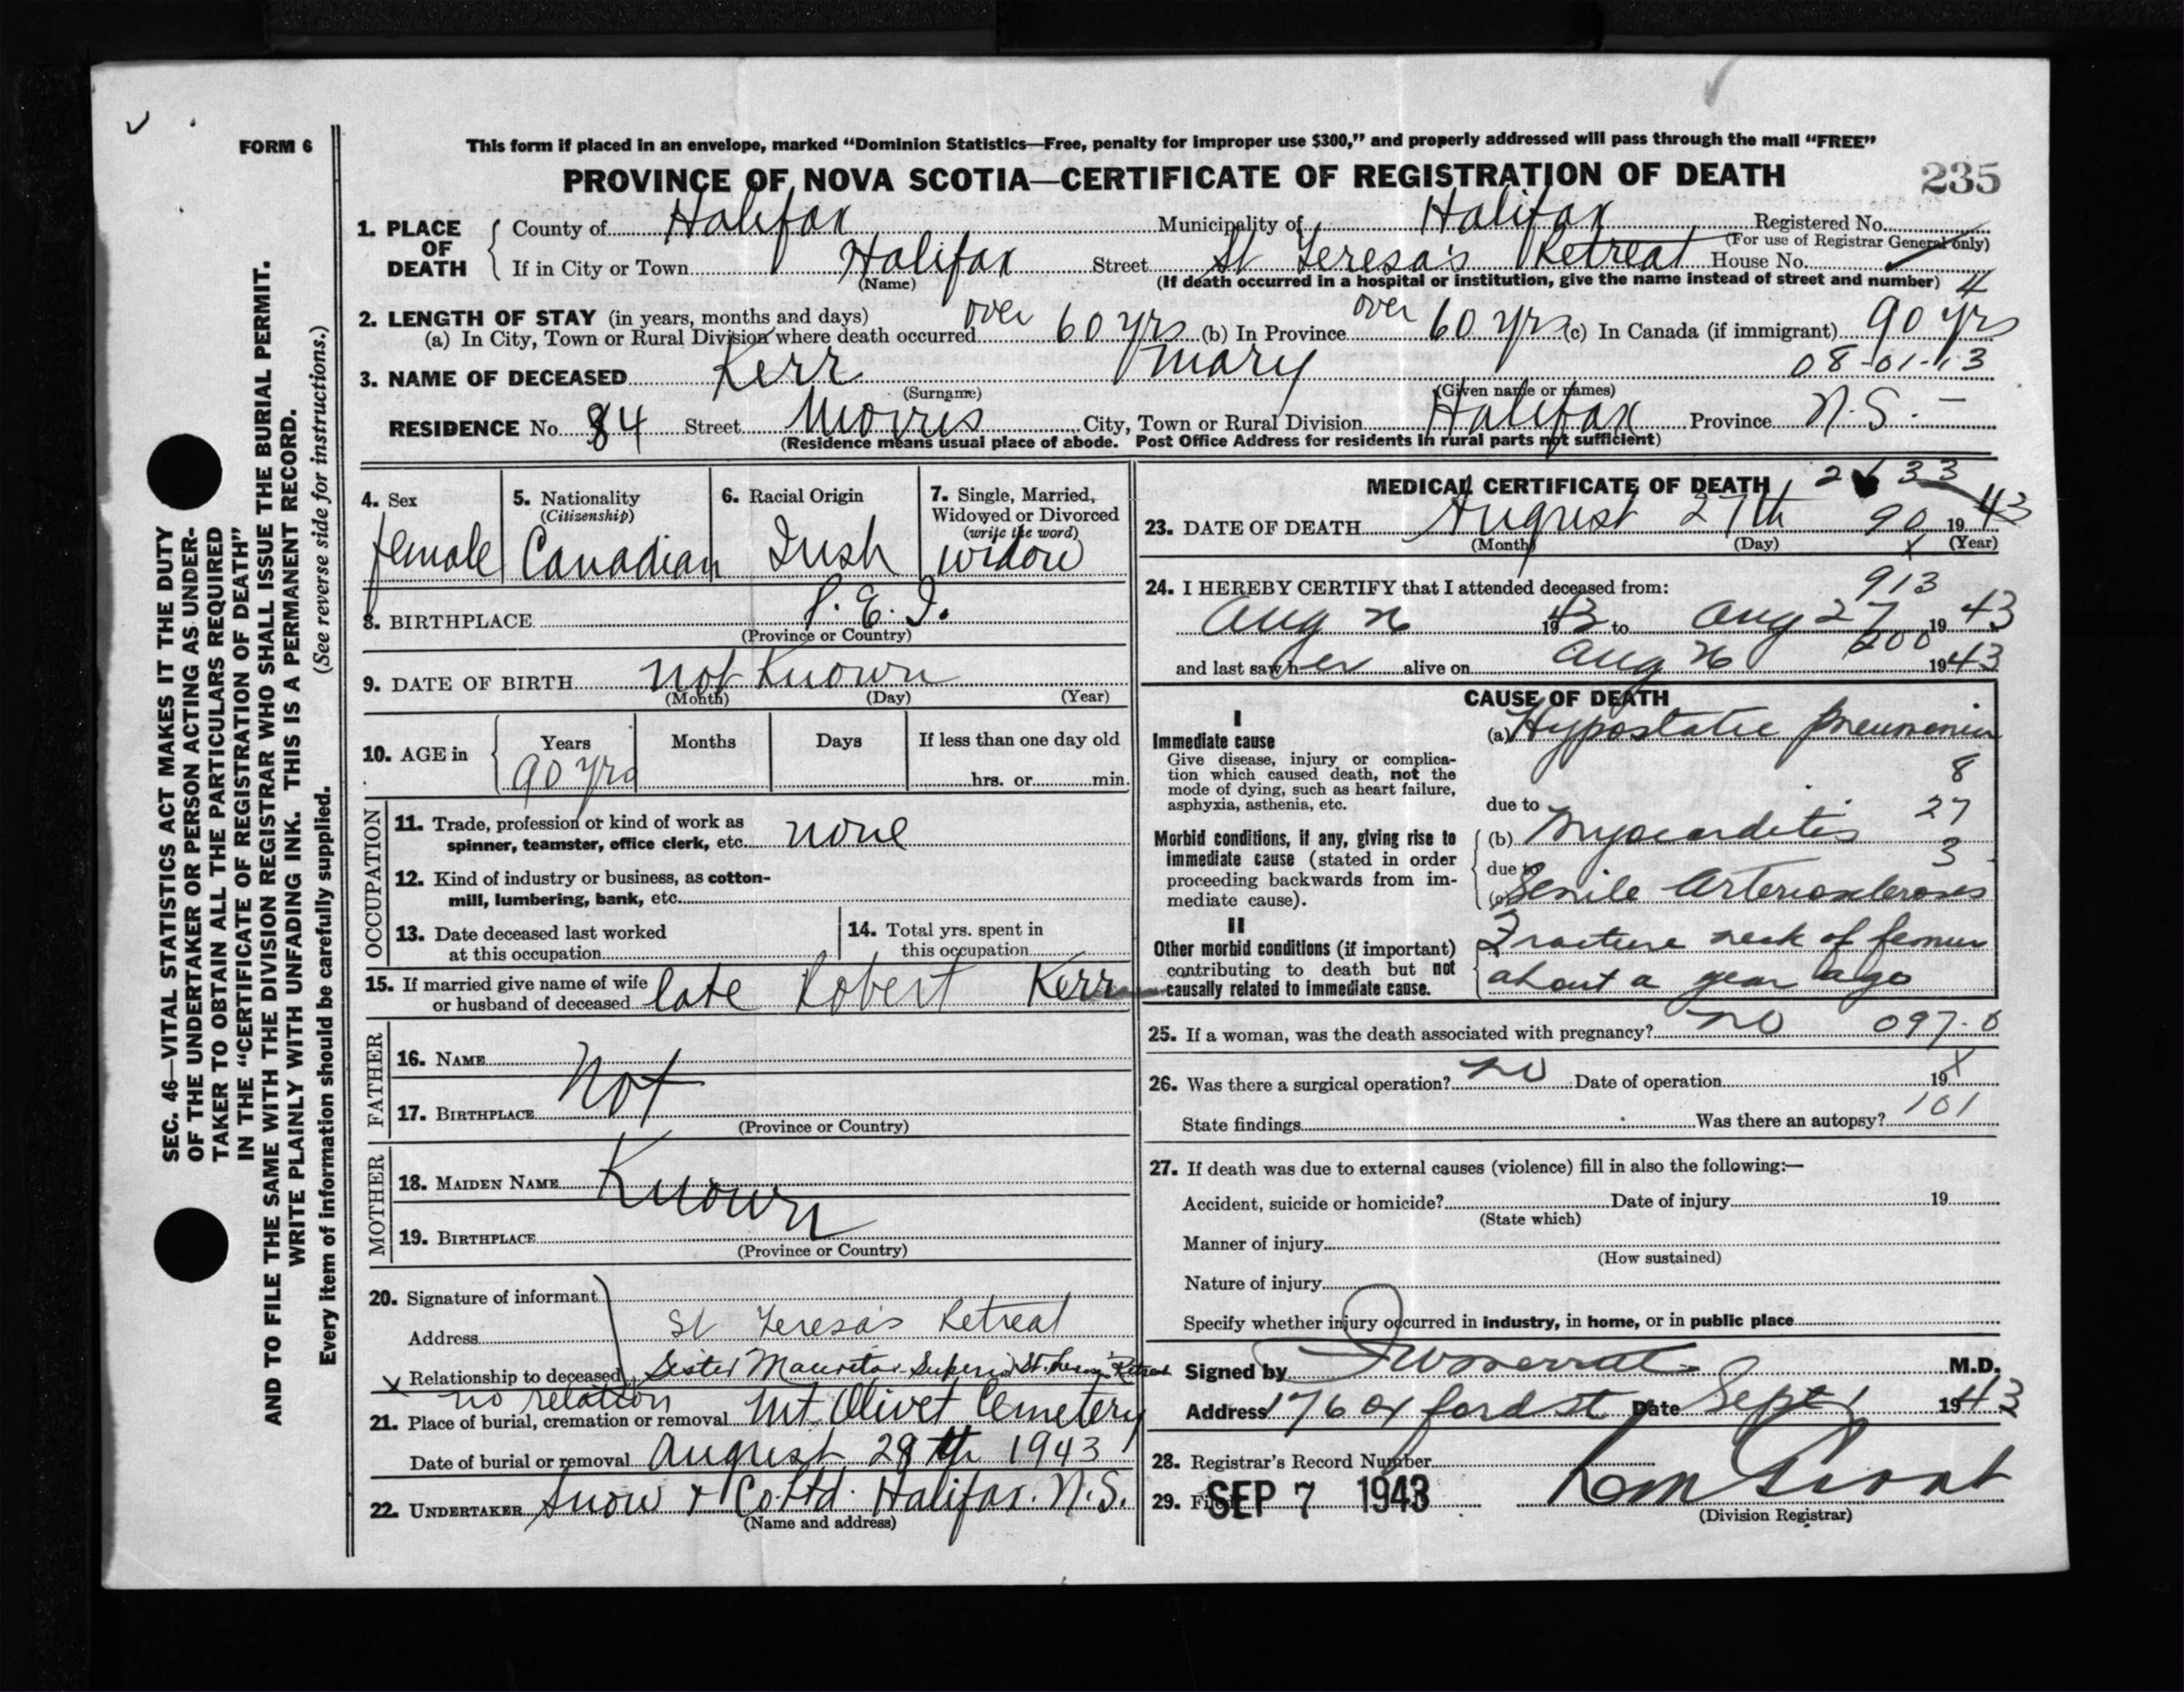 FORM 6
This form if placed in an envelope, marked “Dominion Statistics—Free, penalty for improper use $300,” and properly addressed will pass through the mail “FREE”
PROVINCE OF NOVA SCOTIA—CERTIFICATE OF REGISTRATION OF DEATH
235
1. PLACE OF DEATH
County of Halifax Municipality of Halifax Registered No.
(For use of Registrar General only)
If in City or Town Halifax Street St Teresa's Retreat House No.
(Name) (If death occurred in a hospital or institution, give the name instead of street and number) 4
2. LENGTH OF STAY (in years, months and days)
(a) In City, Town or Rural Division where death occurred over 60 yrs (b) In Province over 60 yrs (c) In Canada (if immigrant) 90 yrs
08-01-13
3. NAME OF DECEASED Kerr Mary
(Surname) (Given name or names)
RESIDENCE No. 84 Street Morris City, Town or Rural Division Halifax Province N.S.
(Residence means usual place of abode. Post Office Address for residents in rural parts not sufficient)
4. Sex
female
5. Nationality
(Citizenship)
Canadian
6. Racial Origin
Irish
7. Single, Married,
Widowed or Divorced
(write the word)
widow
8. BIRTHPLACE P.E.I.
(Province or Country)
9. DATE OF BIRTH Not Known
(Month) (Day) (Year)
10. AGE in
Years Months Days If less than one day old
90 yrs hrs. or min.
OCCUPATION
11. Trade, profession or kind of work as
spinner, teamster, office clerk, etc. none
12. Kind of industry or business, as cotton-
mill, lumbering, bank, etc.
13. Date deceased last worked
at this occupation
14. Total yrs. spent in
this occupation
15. If married give name of wife
or husband of deceased late Robert Kerr
FATHER
16. NAME
Not
17. BIRTHPLACE
(Province or Country)
MOTHER
18. MAIDEN NAME
Known
19. BIRTHPLACE
(Province or Country)
20. Signature of informant
Address St Teresa's Retreat
X Relationship to deceased Sister Superior St. Retreat
no relation
21. Place of burial, cremation or removal Mt Olivet Cemetery
Date of burial or removal August 28th 1943
22. UNDERTAKER Snow & Co. Ltd. Halifax. N.S.
(Name and address)
MEDICAL CERTIFICATE OF DEATH 2633
23. DATE OF DEATH August 27th 90 1943
(Month) (Day) (Year)
24. I HEREBY CERTIFY that I attended deceased from:
913
Aug 26 1943 to Aug 27 1943
200
and last saw her alive on Aug 26 1943
CAUSE OF DEATH
I
Immediate cause
Give disease, injury or complica-
tion which caused death, not the
mode of dying, such as heart failure,
asphyxia, asthenia, etc.
(a) Hypostatic pneumonia
8
due to
27
Morbid conditions, if any, giving rise to
immediate cause (stated in order
proceeding backwards from im-
mediate cause).
(b) Myocarditis
3
due to
(c) Senile Arteriosclerosis
II
Other morbid conditions (if important)
contributing to death but not
causally related to immediate cause.
Fracture neck of femur
about a year ago
25. If a woman, was the death associated with pregnancy? no 097-6
26. Was there a surgical operation? no Date of operation 19 X
101
State findings Was there an autopsy?
27. If death was due to external causes (violence) fill in also the following:—
Accident, suicide or homicide? Date of injury 19
(State which)
Manner of injury
(How sustained)
Nature of injury
Specify whether injury occurred in industry, in home, or in public place
Signed by M.D.
Address 176 Oxford St Date Sept 1 1943
28. Registrar's Record Number
29. Filed SEP 7 1943
(Division Registrar)
SEC. 46—VITAL STATISTICS ACT MAKES IT THE DUTY
OF THE UNDERTAKER OR PERSON ACTING AS UNDER-
TAKER TO OBTAIN ALL THE PARTICULARS REQUIRED
IN THE “CERTIFICATE OF REGISTRATION OF DEATH”
AND TO FILE THE SAME WITH THE DIVISION REGISTRAR WHO SHALL ISSUE THE BURIAL PERMIT.
WRITE PLAINLY WITH UNFADING INK. THIS IS A PERMANENT RECORD.
Every item of information should be carefully supplied. (See reverse side for instructions.)